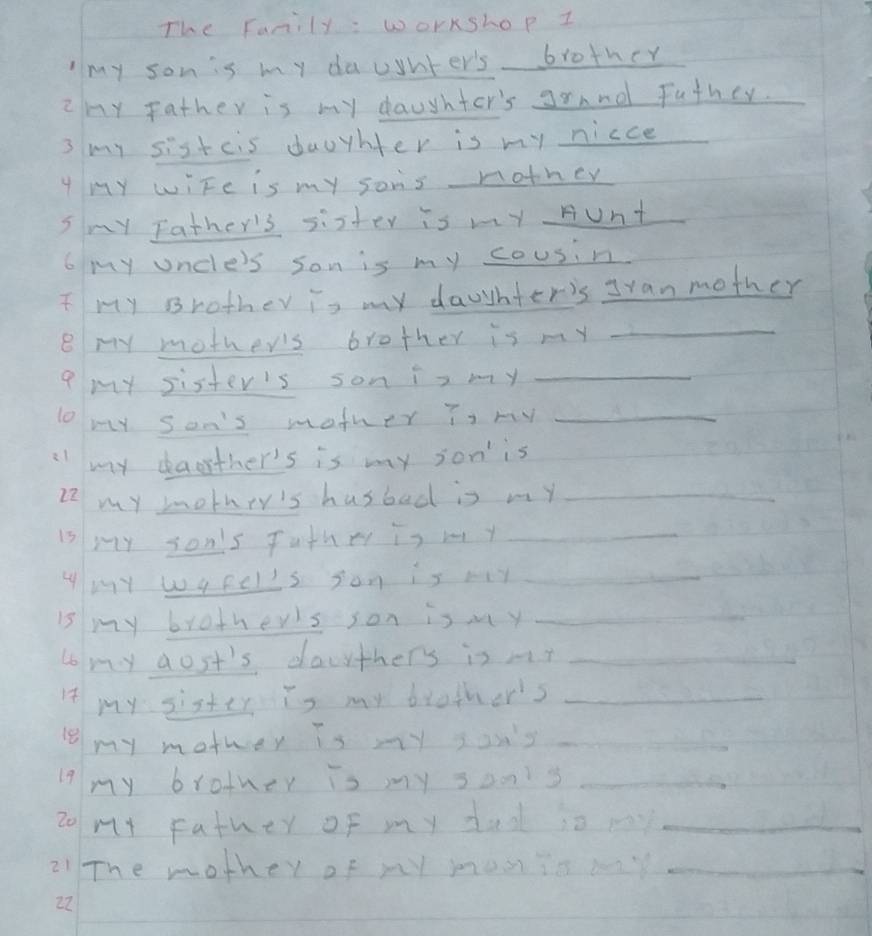 The Family: workshop 1
1 my son is my daughter's brother
2 my Father is my daughter's grand Father.
3 my sisteis daughter is my niece
4 my wiFe is my son's mother
5 my Father's sister is my Aunt
6 my uncle's son is my cousin
7 my Brother is my daughter's granmother
8 my mother's brother is my
9 my sister's son is my
10 my son's mother is my
11 my daosther's is my son'is
22 my mother's husbad is my
13 my son's Father is my
4 my son is my
15 my brother's son is my
16 my aost's daurthers is my
17 my sister is my brother's
18 my mother is my son's
19 my brother is my son's
20 my Father oF my dad is my
21 The mother of my mom is my
22